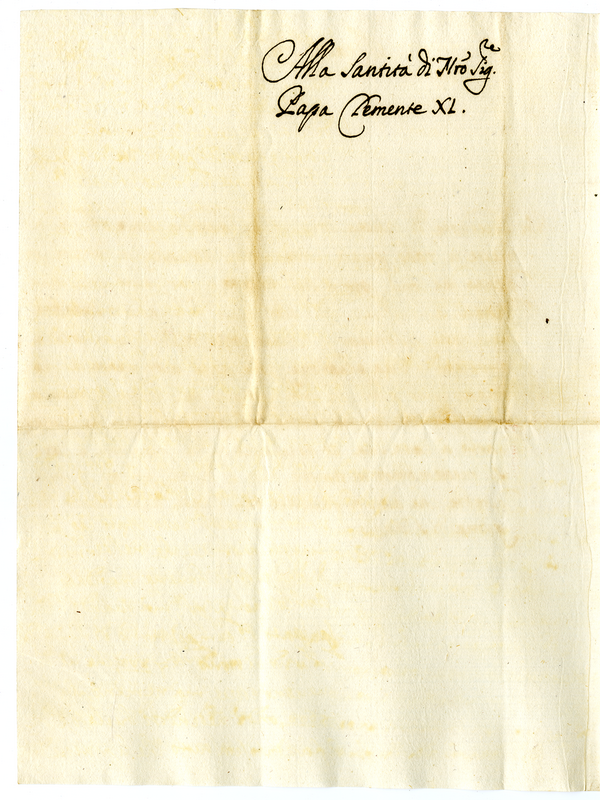 Alla Santità di Nrõ Sig.re
Papa Clemente XI.